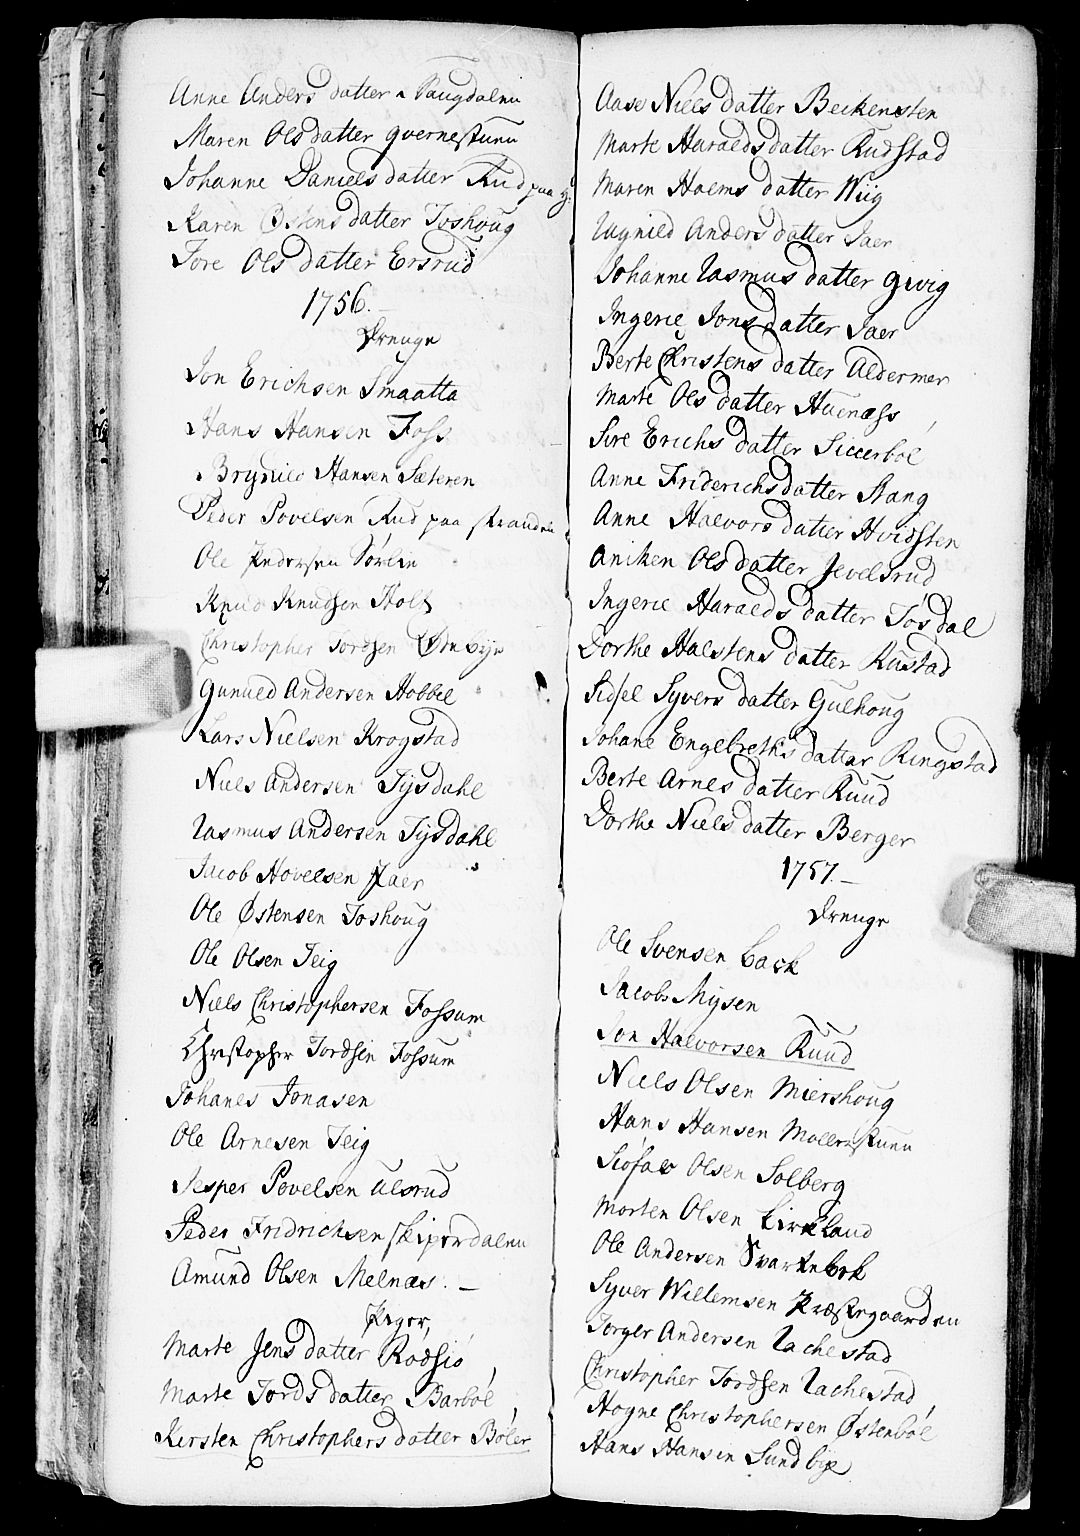 Anne Anders datter a Saugdalen
Maren Ols datter qvernestuen
Johanne Daniels datter Rud paa
Karen Østens datter Toshoug
Tore Ols datter Ersrud
1756.
Drenge
Jon Erichsen Smaatta
Hans Hansen Foss
Brynild Hansen Sæteren
Peder Povelsen Rud paa stranden
Ole Pedersen Sørlie
Knud Knudsen Holt
Christopher Tordsen Ørnbye
Gunnild Andersen Hobbel
Lars Nielsen Krogstad
Niels Andersen Tijsdahl
Rasmus Andersen Tijsdahl
Jacob Hovelsen Haer
Ole Østensen Toshoug
Ole Olsen Teig
Niels Christophersen Fossum
Christopher Tordsen Fossum
Johanes Jonasen
Ole Arnesen Teig
Jesper Povelsen Ulsrud
Peder Fridrichsen skiperdalen
Amund Olsen Melnæs. –
Piger,
Marte Jens datter Rodsio
Marte Tords datter Barbøl
Kersten Christophers datter Bøler
Aase Niels datter Beckensten
Marte Haralds datter Rudstad
Maren Holms datter Wiig
Ragnild Anders datter Saer
Johanne Rasmus datter qvig
Ingerie Jons datter Saer
Berte Christens datter Aldermer
Marte Ols datter Huenæss
Sire Erichs datter Sickerbøl
Anne Friderichs datter Stang
Anne Halvors datter Hvidsten
Aniken Ols datter Jevelsrud
Ingerie Haralds datter Tosdal
Dorthe Halstens datter Rustad
Sidsel Syvers datter Gulhoug
Johane Engelbreths datter Ringstad
Berte Arnes datter Ruud
Dorthe Niels datter Berger
1757. –
Drenge
Ole Svensen back
Jacob Mysen
Jon Halvorsen Ruud
Niels Olsen Miershoug
Hans Hansen Mollerstuen
Olsen Solberg
Morten Olsen Kirkeland
Ole Andersen Svartebek
Syver Willemsen Præstegaarden
Torger Andersen Rachestad
Christopher Tordsen Rachestad
Hogne Christophersen Østenbøl
Hans Hansen Sundbye